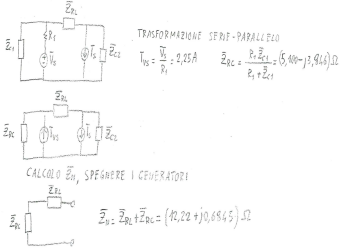 Z̄RL
Z̄C1
R1
V̄S
ĪS
Z̄C2
TRASFORMAZIONE SERIE-PARALLELO
ĪVS = V̄S / R1 = 2,25A
Z̄RC = R1 Z̄C1 / R1 + Z̄C1 = (5,100-j3,946) Ω
Z̄RL
Z̄RC
ĪVS
ĪS
Z̄C2
CALCOLO Z̄11, SPEGNERE I GENERATORI
Z̄RL
Z̄RC
Z̄11 = Z̄RL + Z̄RC = (12,22+j0,6945) Ω